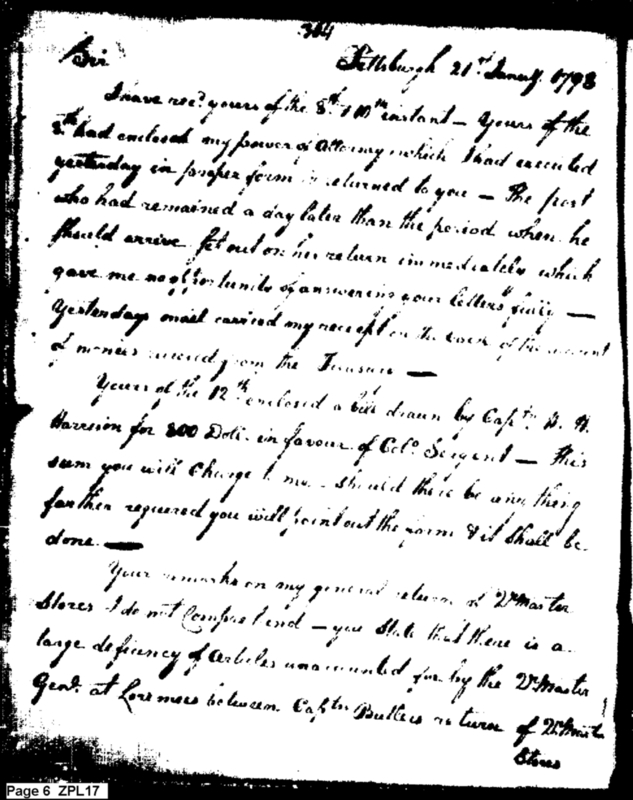 304
Sir Pittsburgh 21st Januy. 1798
I have recd. yours of the 8th & 10th instant — Yours of the
8th had enclosed my power of Attorney which I had executed
yesterday in proper form is returned to you — The post
who had remained a day later than the period when he
should arrive set out on his return immediately which
gave me no opportunity of answering your letters fully —
Yesterdays mail carried my receipt on the back of the account
of monies received from the Treasury —
Yours of the 12th enclosed a bill drawn by Captn. W. H.
Harrison for 800 Doll. in favour of Colo. Sergent — This
sum you will Charge to me. Should there be any thing
farther required you will point out the form & it Shall be
done. —
Your remarks on my general return of Qr Master
Stores I do not Comprehend — you State that there is a
large deficiency of Articles unaccounted for by the Qr Master
Genl. at Loromees between Captn Butlers return of Qr Master
Stores
Page 6 ZPL17